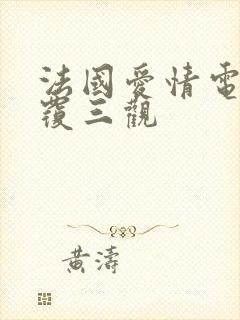 法國愛情電
覆三觀
黃濤